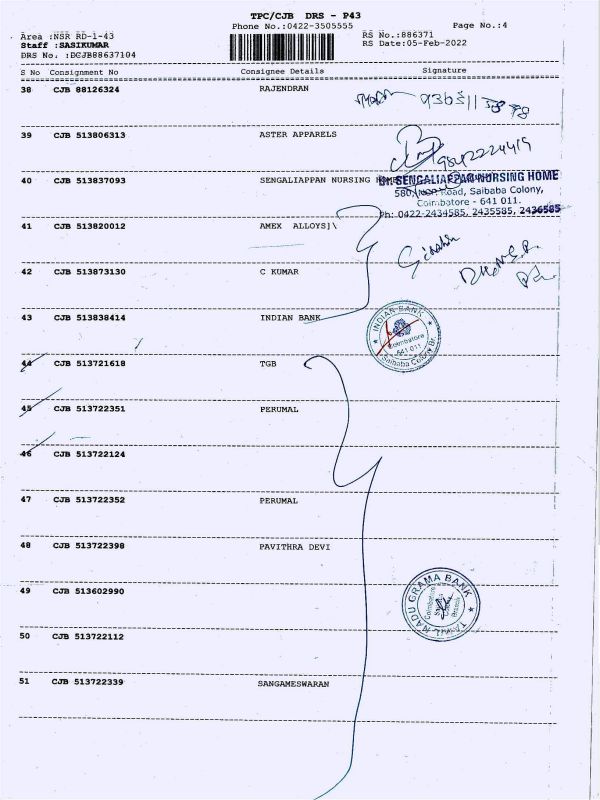 TPC/CJB DRS - P43
Phone No.:0422-3505555
Page No.:4
Area :NSR RD-1-43
RS No.:886371
Staff :SASIKUMAR
RS Date:05-Feb-2022
DRS No. :DCJB88637104
S No Consignment No Consignee Details Signature
38 CJB 88126324 RAJENDRAN
39 CJB 513806313 ASTER APPARELS
9842224419
40 CJB 513837093 SENGALIAPPAN NURSING
Dr. SENGALIAPPAN NURSING HOME
580, Road, Saibaba Colony,
Coimbatore - 641 011.
Ph: 0422-2434585, 2435585, 2436585
41 CJB 513820012 AMEX ALLOYS]\
42 CJB 513873130 C KUMAR
43 CJB 513838414 INDIAN BANK
INDIAN BANK
Coimbatore
641 011
Saibaba Colony Br.
44 CJB 513721618 TGB
45 CJB 513722351 PERUMAL
46 CJB 513722124
47 CJB 513722352 PERUMAL
48 CJB 513722398 PAVITHRA DEVI
49 CJB 513602990
TAMIL NADU GRAMA BANK
50 CJB 513722112
51 CJB 513722339 SANGAMESWARAN